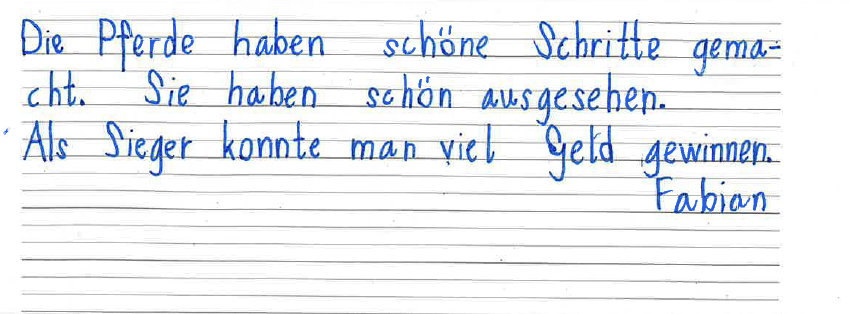 Die Pferde haben schöne Schritte gema-
cht. Sie haben schön ausgesehen.
Als Sieger konnte man viel Geld gewinnen.
Fabian